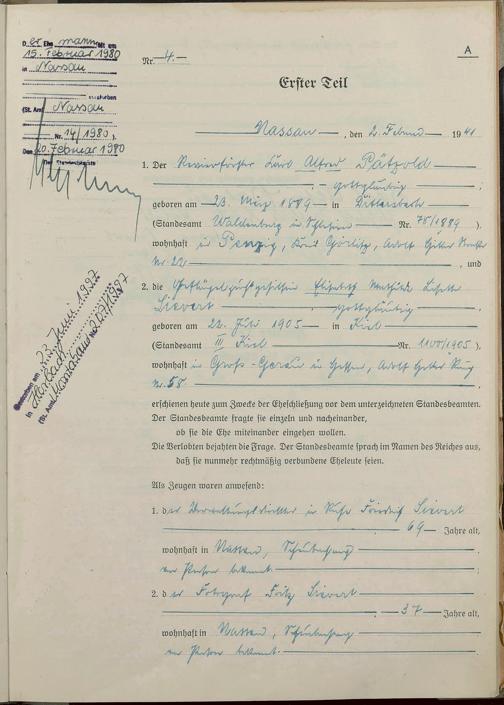 Der Ehemann ist am
15. Februar 1980
in Nassau
verstorben
(St. Amt Nassau
Nr. 14/1980).
Den 20. Februar 1980
Der Standesbeamte
Gestorben am 23. Juni 1997
in
(St. Amt Montabaur 207/1997
A
Nr. 4.
Erster Teil
Nassau, den 2. Februar 1941
1. Der Revierförster Karl Alfred Pätzold
, gottgläubig
geboren am 23. März 1889 in Dittersbach
(Standesamt Waldenburg in Schlesien Nr. 75/1889),
wohnhaft in Penzig, Kreis Görlitz, Adolf Hitler Straße
Nr. 22, und
2. die Geflügelzuchtgehilfin Elisabeth Mathilde
Sievert, gottgläubig
geboren am 22. Juli 1905 in Kiel
(Standesamt III Kiel Nr. 1100/1905),
wohnhaft in Groß-Gerau in Hessen, Adolf Hitler Ring
Nr. 58
erschienen heute zum Zwecke der Eheschließung vor dem unterzeichneten Standesbeamten.
Der Standesbeamte fragte sie einzeln und nacheinander,
ob sie die Ehe miteinander eingehen wollen.
Die Verlobten bejahten die Frage. Der Standesbeamte sprach im Namen des Reiches aus,
daß sie nunmehr rechtmäßig verbundene Eheleute seien.
Als Zeugen waren anwesend:
1. der Verwaltungsdirektor in Ruhe Friedrich Sievert
69 Jahre alt,
wohnhaft in Nassau,
der Person bekannt;
2. der Fotograf Fritz Sievert
, 37 Jahre alt,
wohnhaft in Nassau,
der Person bekannt.